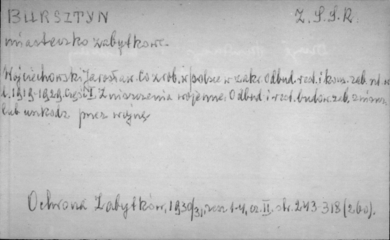 BURSZTYN Z.S.S.R.
miasteczko zabytkowe.
Wojciechowski Jarosław. Co zrob. w Polsce w zakr. Odbud. rest. i kons. zab. nt. w
l. 1919-1929. Część I. Zniszczenia wojenne. Odbud. i rest. budow. zab. zniszcz.
lub uszkodz. przez wojnę
Ochrona Zabytków, 1930/31, rocz. 1-4, cz. II. str. 243-318 (260).